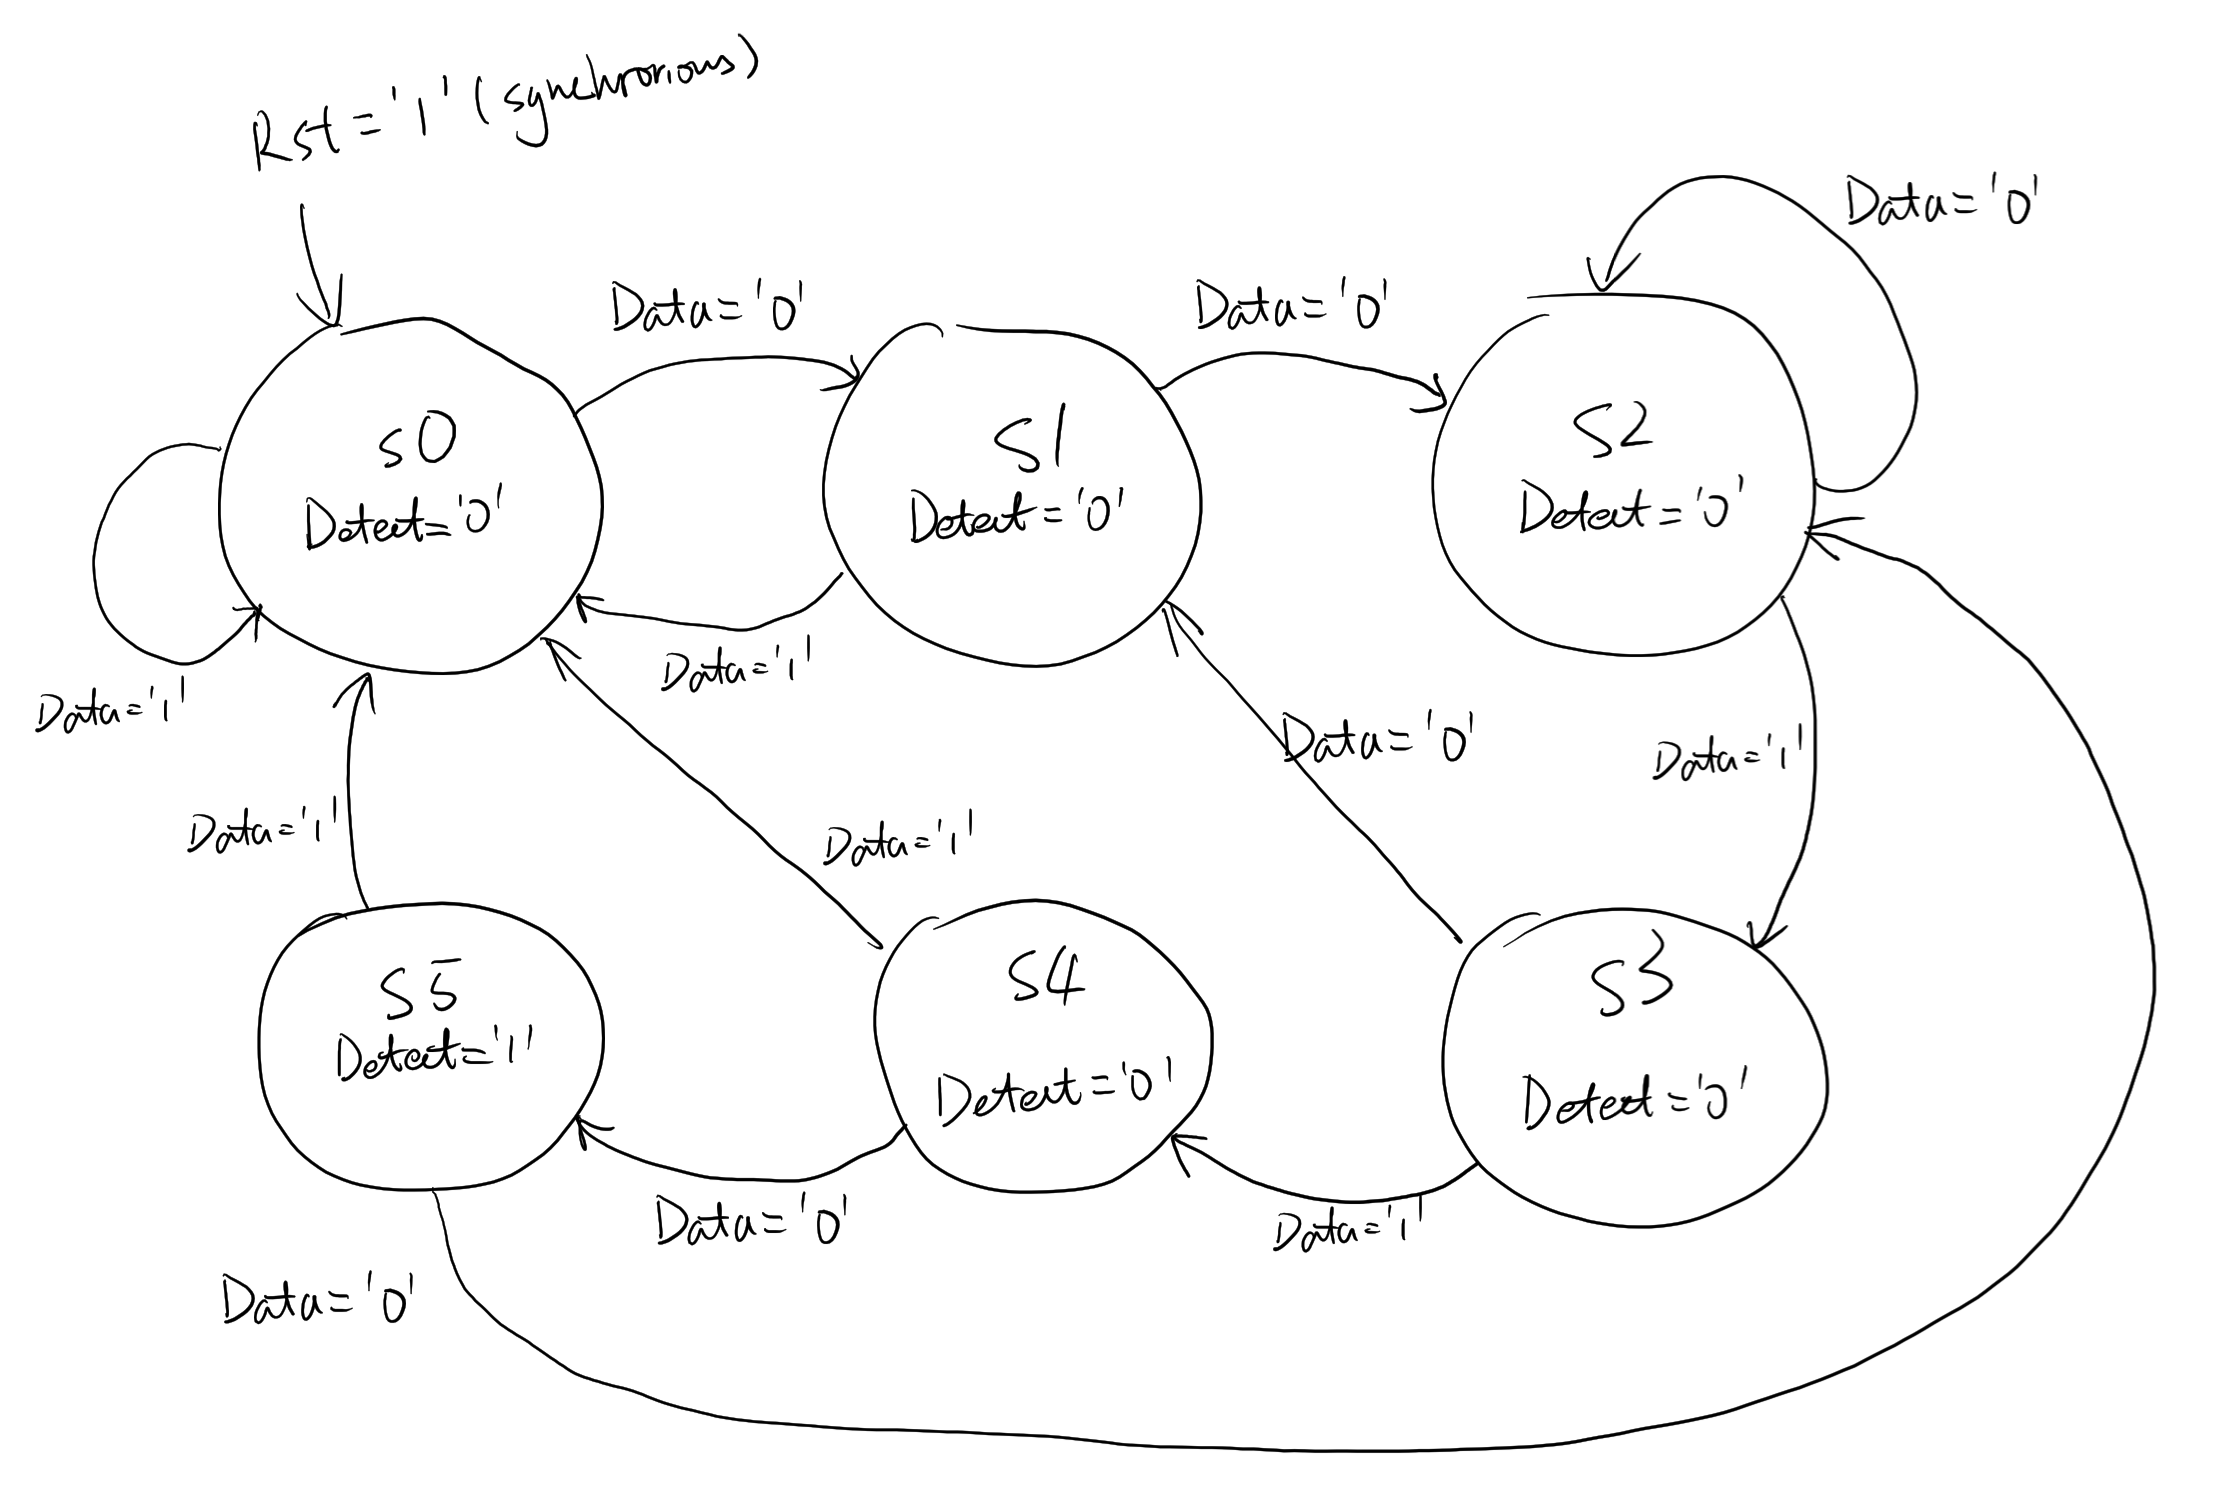 Rst='1' (synchronous)
Data='0'
Data='0'
Data='0'
S0
Detect='0'
S1
Detect='0'
S2
Detect='0'
Data='1'
Data='1'
Data='0'
Data='1'
Data='1'
Data='1'
S5
Detect='1'
S4
Detect='0'
S3
Detect='0'
Data='0'
Data='1'
Data='0'